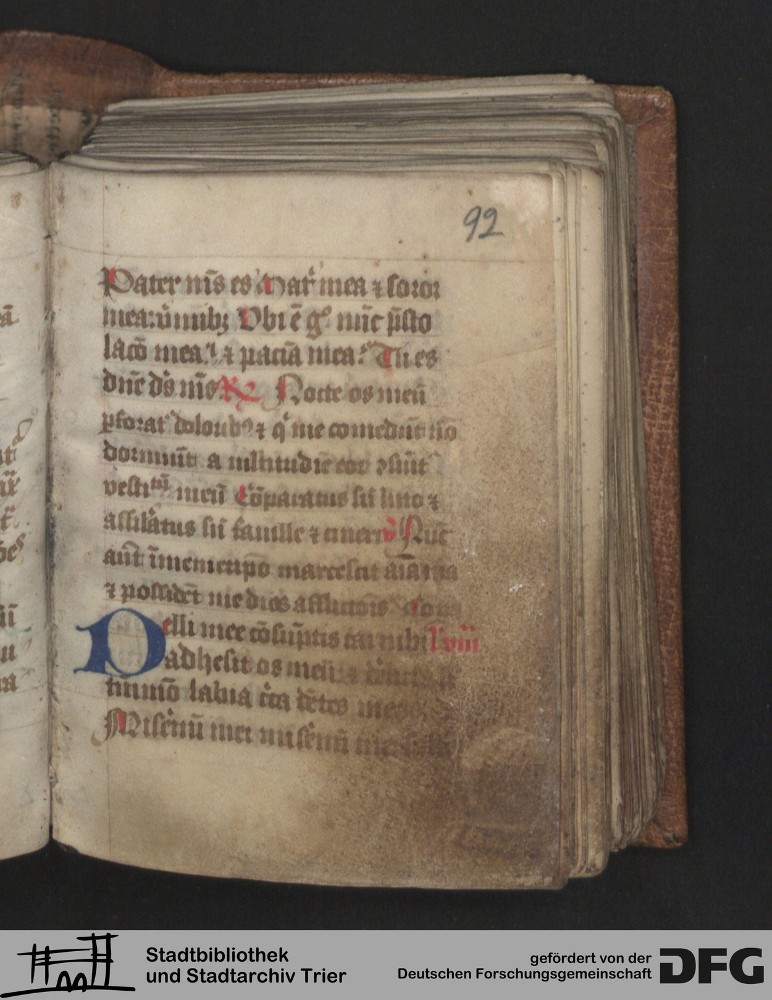 92
Pater m̅s es Mat᷑ mea ⁊ soror
mea: v̅mibꝫ Vbi ē gͦ nūc p̅sto
lac̅o mea: ⁊ paciā mea: Tu es
dn̅e ds̅ nr̅s Rx Nocte os meū
ꝑforat᷑ dolorib⁹ ⁊ q̇ me comedūt nō
dormiūt a mltitudīe eoꝝ ꝯsūit᷑
vestitū meū Cōparatus sū luto ⁊
assilātus sū fauille ⁊ cineri v̊ Nūc
aūt ī memetip̅o marcescit aīa
⁊ possidēt me dies afflictōis
Pelli mee cōsūptis carnibꝫ lviii
adhesit os meū ⁊
tūmō labia cͥca dētes meos
Miserēm̅ mei miserēm̅
Stadtbibliothek
und Stadtarchiv Trier
gefördert von der
Deutschen Forschungsgemeinschaft
DFG